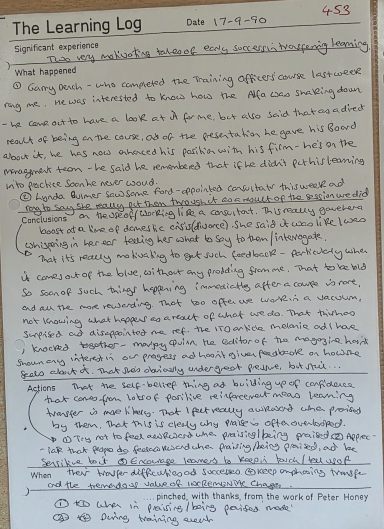 453
The Learning Log Date 17-9-90
Significant experience
Two very motivating tales of early success in transferring learning
What happened
① Garry - who completed the Training Officers course last week
rang me. He was interested to know how the Alfa was shaking down
- he came out to have a look at it for me, but also said that as a direct
result of being on the course, and of the presentation he gave his Board
about it, he has now enhanced his position with his firm - he's on the
management team - he said he remembered that if he didn't put his learning
into practice soon he never would.
② Lynda saw some Ford-appointed consultants this week and
rang to say she really put them through it as a result of the session we did
Conclusions on the use of/working like a consultant. This really gave her a
boost at a time of domestic crisis (divorce). She said it was like I was
whispering in her ear feeding her what to say to them/interrogate.
That it's really motivating to get such feedback - particularly when
it comes out of the blue, without any prodding from me. That to be told
so soon of such things happening immediately after a course is rare,
and all the more rewarding. That too often we work in a vacuum,
not knowing what happens as a result of what we do. That this has
surprised and disappointed me ref. the ITD article Melanie and I have
knocked together - the editor of the magazine hasn't
shown any interest in our progress and hasn't given feedback on how she
feels about it. That she's obviously under great pressure, but still...
Actions That the self-belief thing and building up of confidence
that comes from lots of positive reinforcement means learning
transfer is more likely. That I feel really awkward when praised
by them. That this is clearly why praise is often overlooked.
① Try not to feel awkward when praising/being praised ② Apprec-
iate that people do feel awkward when praising/being praised, and be
sensitive but ③ Encourage learners to keep in touch/tell us of
When their transfer difficulties and successes ④ Keep emphasising transfer
and the tremendous value of incremental changes.
.... pinched, with thanks, from the work of Peter Honey
① + ② When in 'praising/being praised mode'
③ + ④ During training event